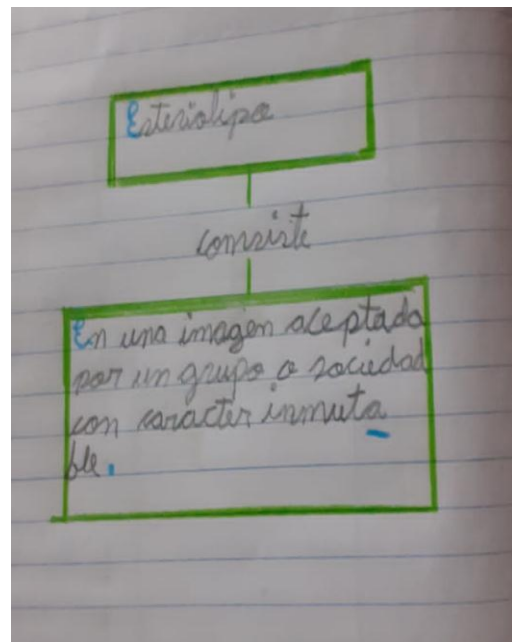 Esteriolipo
consiste
En una imagen aceptado
por un grupo o sociedad
con caracter inmuta
ble.